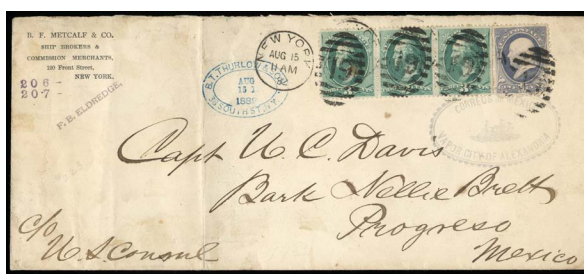 B. F. METCALF & CO.
SHIP BROKERS &
COMMISSION MERCHANTS,
120 Front Street,
NEW YORK.
206-
207-
F. B. ELDREDGE,
AUG
15 1
188
NEW YORK
AUG 15
11 AM
CORREO
VAPOR CITY OF ALEXANDRIA
Capt U. C. Davis
Bark Nellie Brett
Progreso
Mexico
c/o
U S Consul